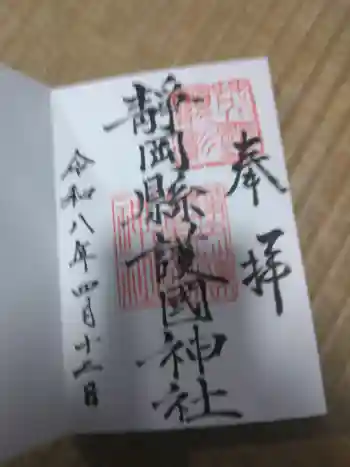 奉拝
靜岡縣護國神社
令和八年四月十二日